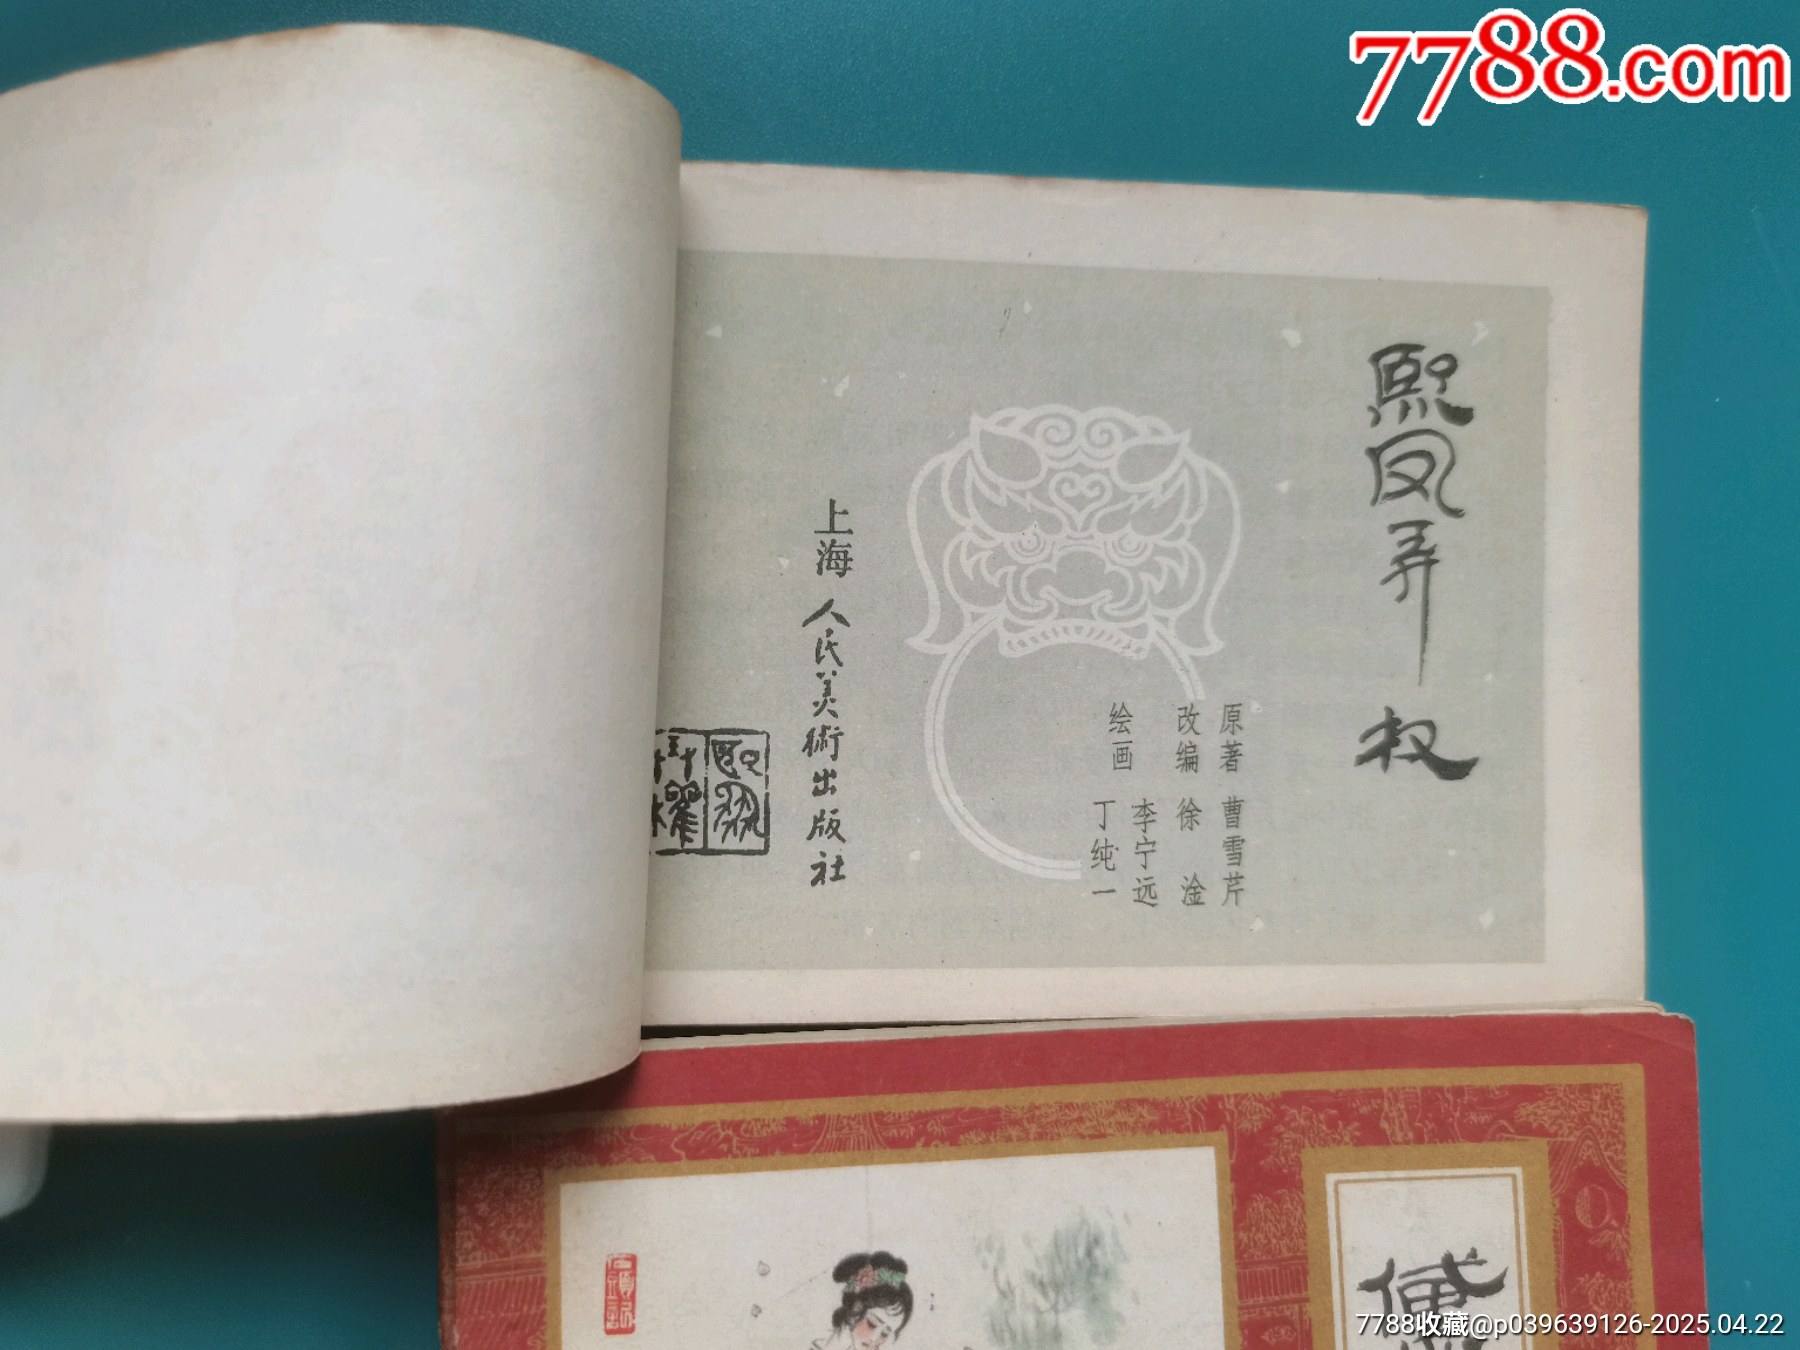 7788.com
熙凤弄权
原著 曹雪芹
改编 徐淦
绘画 李宁远
丁纯一
上海人民美術出版社
石頭記
7788收藏@p039639126-2025.04.22